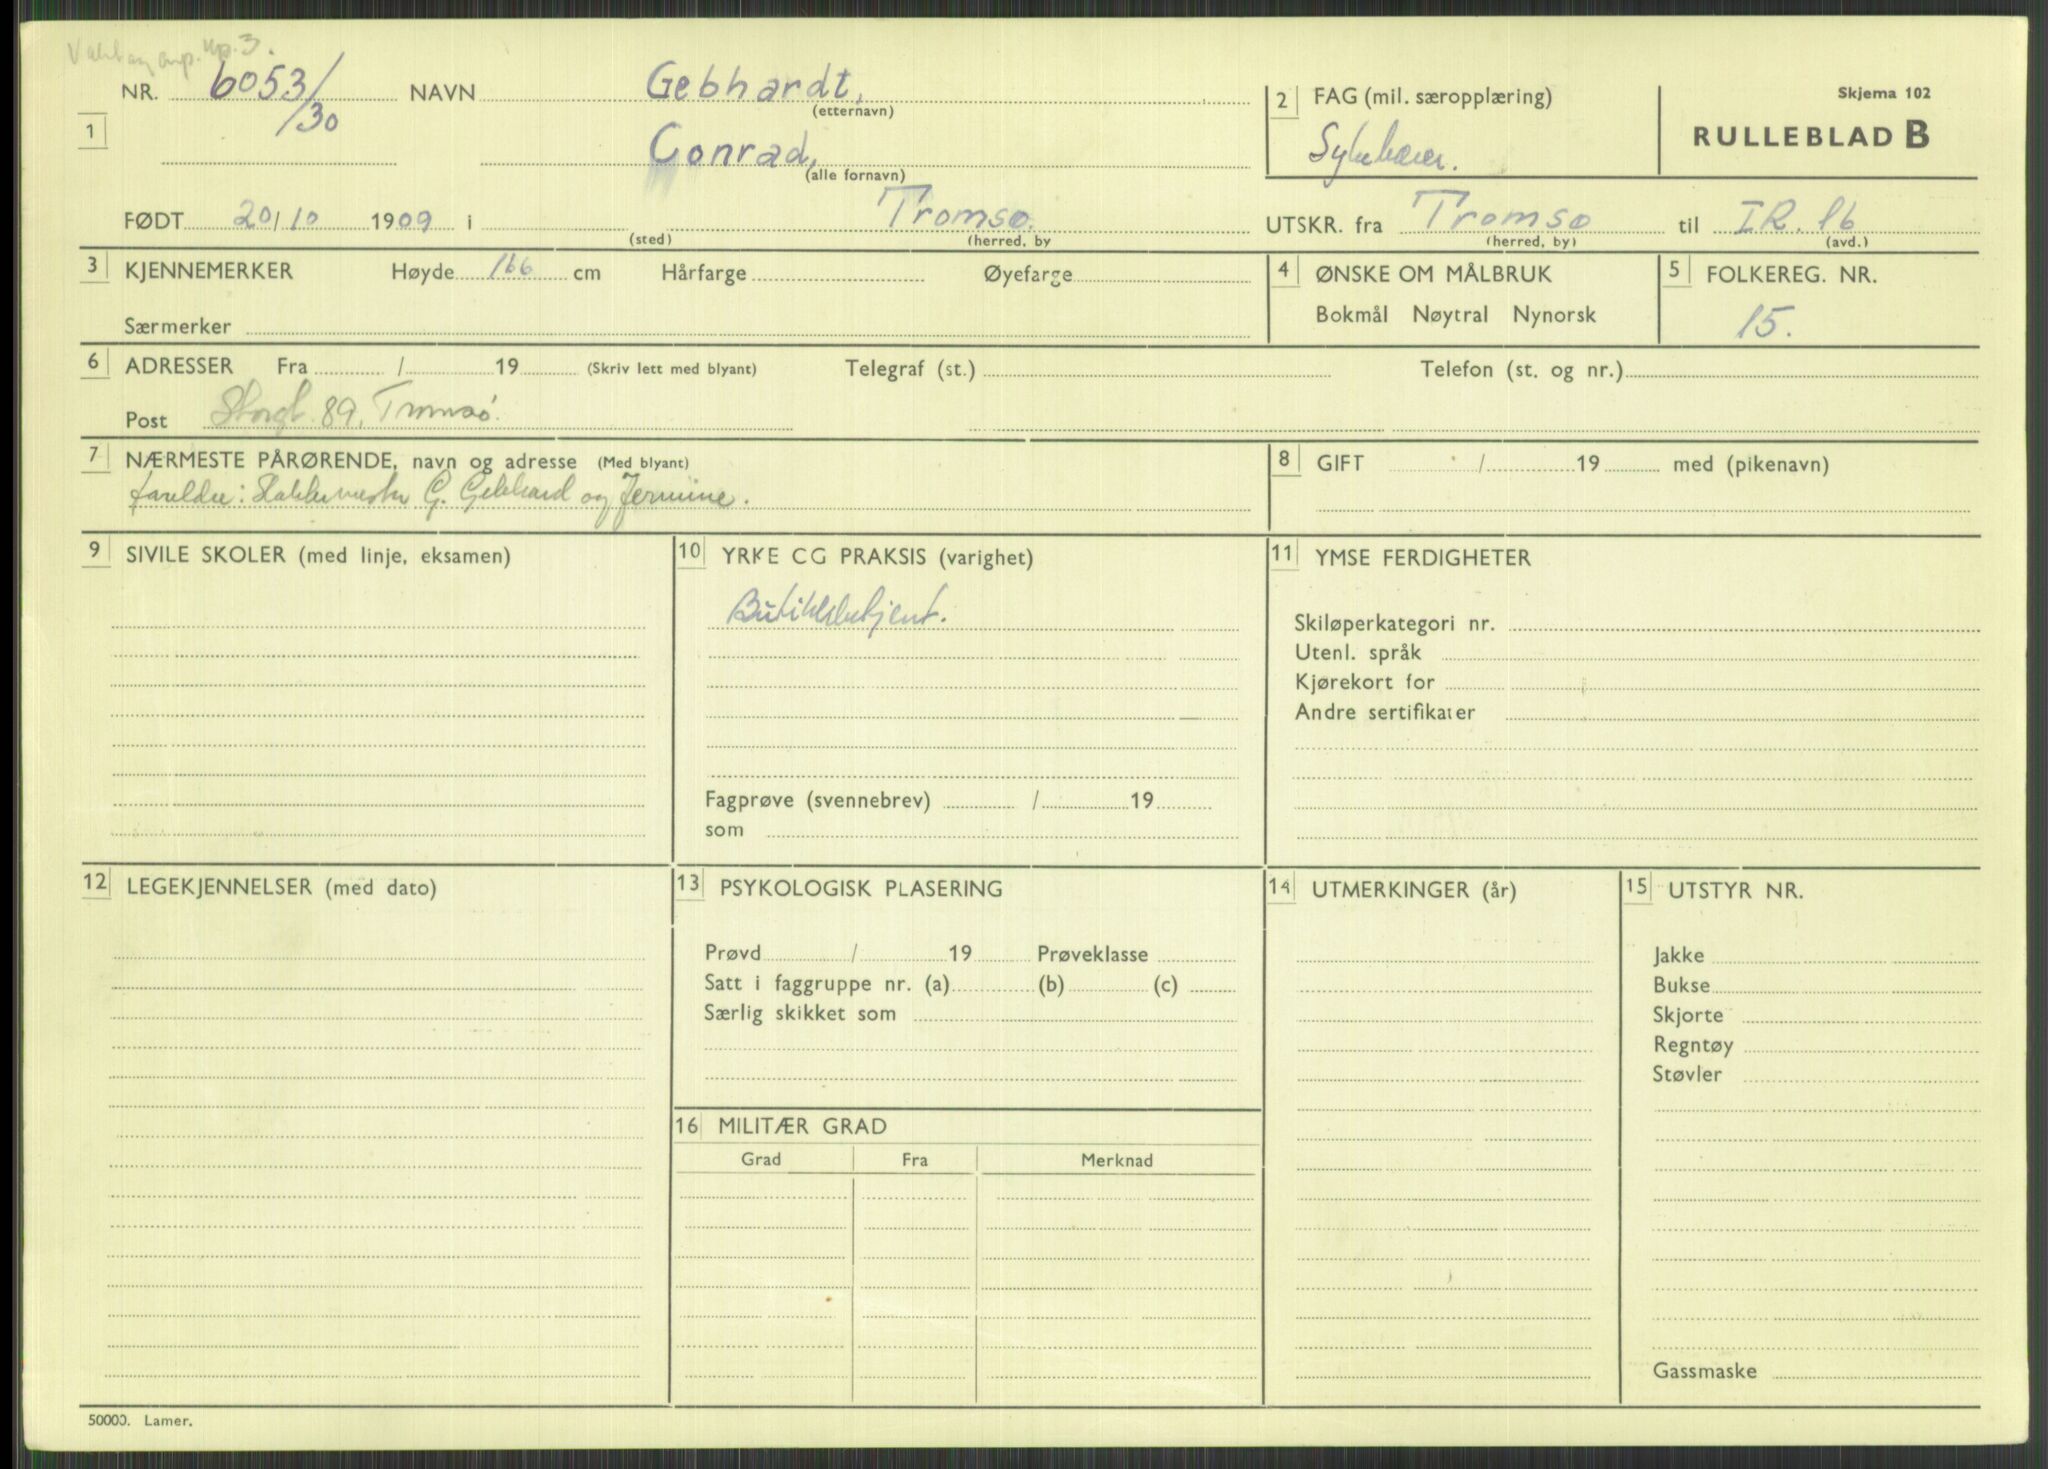 Kp. 3.
NR. 6053/30 NAVN Gebhardt, (etternavn)
2 FAG (mil. særopplæring)
Skjema 102
RULLEBLAD B
1
Conrad, (alle fornavn)
Sykebærer.
FØDT 20/10 1909 i (sted) Tromsø. (herred, by
UTSKR. fra Tromsø (herred, by) til I.R. 16 (avd.)
3 KJENNEMERKER Høyde 166 cm Hårfarge Øyefarge
Særmerker
4 ØNSKE OM MÅLBRUK
Bokmål Nøytral Nynorsk
5 FOLKEREG. NR.
15.
6 ADRESSER Fra / 19 (Skriv lett med blyant) Telegraf (st.) Telefon (st. og nr.)
Post Storgt. 89, Tromsø.
7 NÆRMESTE PÅRØRENDE, navn og adresse (Med blyant)
foreldre: G. Gebhard og Jermine.
8 GIFT / 19 med (pikenavn)
9 SIVILE SKOLER (med linje, eksamen)
10 YRKE CG PRAKSIS (varighet)
Butikkbetjent.
Fagprøve (svennebrev) / 19
som
11 YMSE FERDIGHETER
Skiløperkategori nr.
Utenl. språk
Kjørekort for
Andre sertifikater
12 LEGEKJENNELSER (med dato)
13 PSYKOLOGISK PLASERING
Prøvd / 19 Prøveklasse
Satt i faggruppe nr. (a) (b) (c)
Særlig skikket som
14 UTMERKINGER (år)
15 UTSTYR NR.
Jakke
Bukse
Skjorte
Regntøy
Støvler
Gassmaske
16 MILITÆR GRAD
Grad Fra Merknad
50000. Lamer.